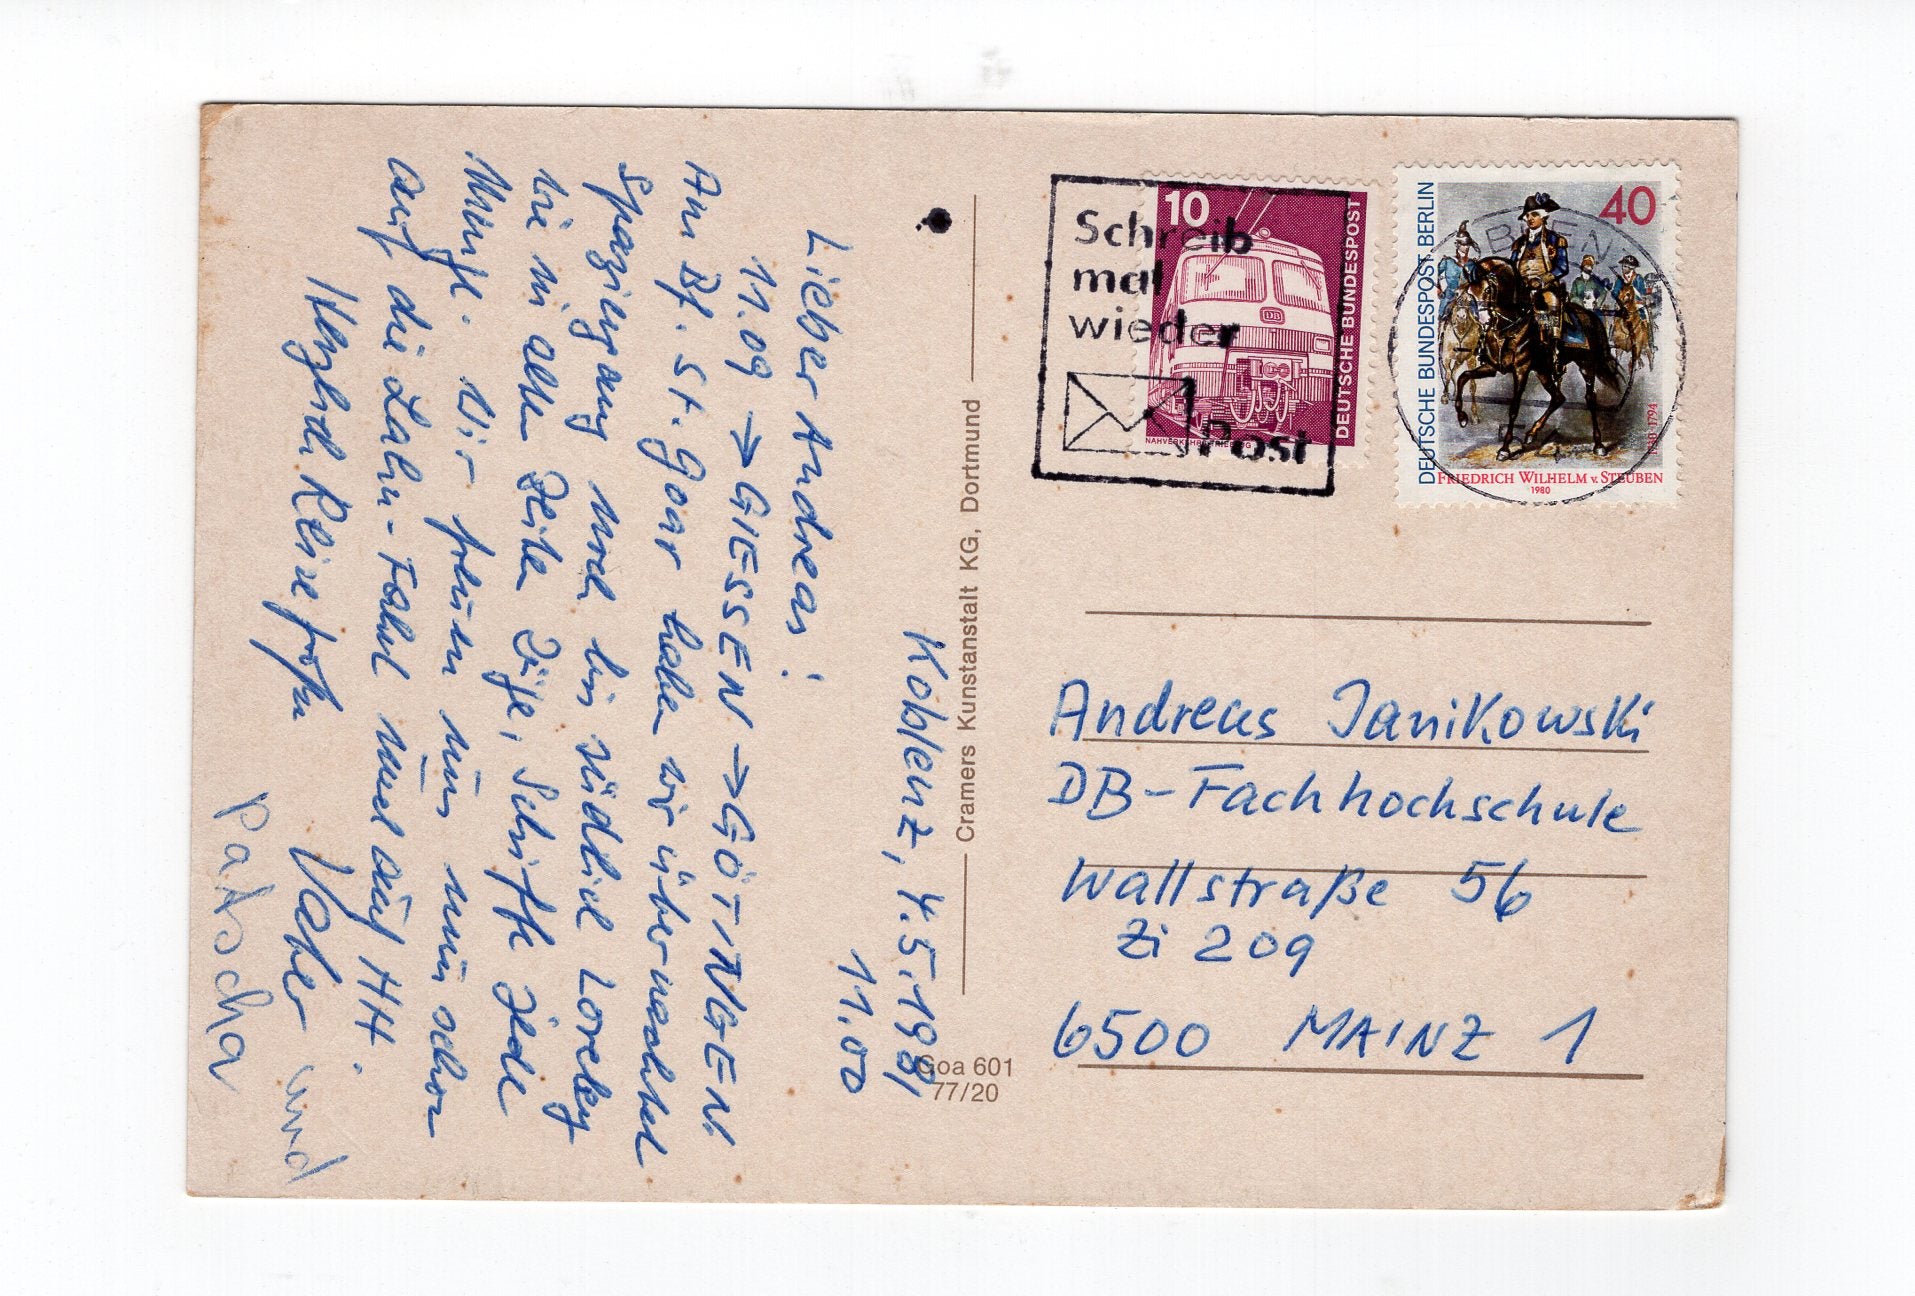 Koblenz, 4.5.1981
11.00
Lieber Andreas!
11.09 → GIESSEN → GÖTTINGEN.
Am Bf. St. Goar haben wir übernachtet
Spaziergang noch bis südlich Loreley
wie in alten Zeiten Züge, Schiffe jede
Minute. Wir freuen uns nun schon
auf die Lahn-Fahrt und auf HH.
Herzliche Reisegrüße
Vater und
Patscha
Cramers Kunstanstalt KG, Dortmund
Goa 601
77/20
Schreib
mal
wieder
Post
10
DEUTSCHE BUNDESPOST
DB
NAHVERKEHRS-TRIEBZUG
40
DEUTSCHE BUNDESPOST BERLIN
1730-1794
FRIEDRICH WILHELM v. STEUBEN
1980
Andreas Janikowski
DB-Fachhochschule
Wallstraße 56
Zi 209
6500 MAINZ 1